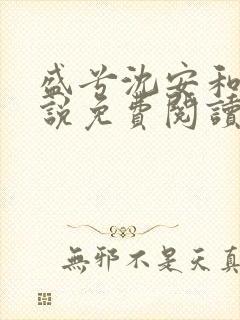 盛兮沈安和
說免費閱讀
無邪不是天真